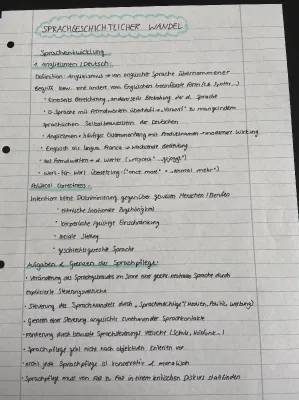 SPRACHGESCHICHTLICHER WANDEL
Sprachentwicklung
1. Anglizismen / Deutsch:
Definition: Anglizismus → von englischer Sprache übernommener
Begriff bzw. eine andere vom Englischen beeinflusste Form
• Einerseits Bereicherung, andererseits Bedrohung der d. Sprache
• D-Sprache mit Fremdwörtern überhäuft → Verweis zu mangelndem
sprachlichen Selbstbewusstsein der Deutschen
• Anglizismen häufiger Zusammenhang mit Produktnamen → moderner Wirkung
• Englisch als lingua franca → weltweite Bedeutung
• aus Fremdwörtern → d. Wörter
• Wort-für-Wort Übersetzung ("once more" = "einmal mehr")
Political Correctness:
Intention: keine Diskriminierung gegenüber gewissen Menschen / Gruppen
• ethnische / nationale Zugehörigkeit
• körperliche / geistige Einschränkung
• soziale Stellung
• geschlechtsgerechte Sprache
Aufgaben & Grenzen der Sprachpflege:
• Veränderung des Sprachgebrauchs im Sinne einer
explizierte Steuerungsversuche
• Steuerung des Sprachwandels durch „Sprachmächtige" (Medien, Politik, Werbung)
• Grenzen einer Steuerung angesichts zunehmender Sprachkontakte
• Förderung durch bewusste Sprachsteuerung versucht (Schule,
• Sprachpflege geht nicht nach objektiven Kriterien vor
• nicht jede Sprachpflege ist konservativ &
• Sprachpflege muss von Fall zu Fall in einem kritischen Diskurs stattfinden